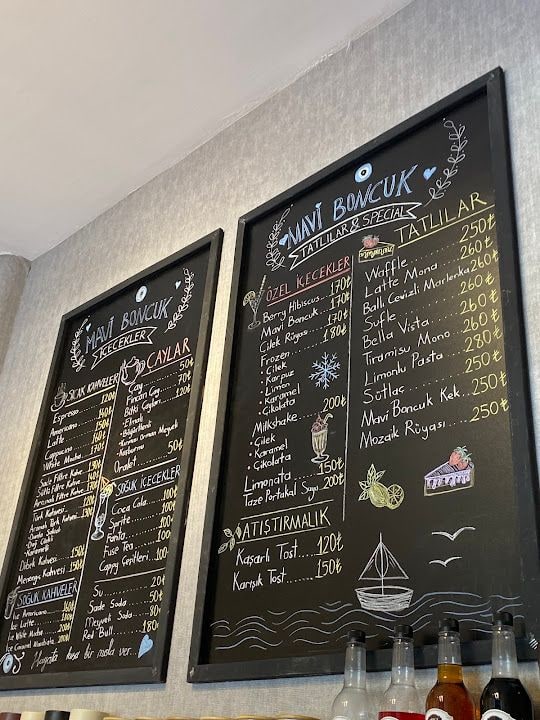 MAVİ BONCUK
İÇECEKLER
SICAK KAHVELER
Espresso 120₺
Americano 150₺
Latte 160₺
Cappucino 160₺
White Mocha 170₺
Sade Filtre Kahve 130₺
Sütlü Filtre Kahve 140₺
Aromalı Filtre Kahve 150₺
Türk Kahvesi 120₺
Aromalı Türk Kahvesi 130₺
• Damla Sakızlı
• Dağ Çileği
• Karamelli
Dibek Kahvesi 150₺
Menengiç Kahvesi 150₺
SOĞUK KAHVELER
Ice Americano 160₺
Ice Latte 180₺
Ice White Mocha 200₺
Ice Caramel Macchiato 200₺
ÇAYLAR
Çay 50₺
Fincan Çay 70₺
Bitki Çayları 120₺
• Elmalı
• Böğürtlenli
• Kırmızı Orman Meyveli
• Kuşburnu
Oralet 50₺
SOĞUK İÇECEKLER
Coca Cola 100₺
Sprite 100₺
Fanta 100₺
Fuse Tea 100₺
Cappy Çeşitleri 100₺
Su 20₺
Sade Soda 50₺
Meyveli Soda 80₺
Red Bull 180₺
Hayata kısa bir mola ver...
MAVİ BONCUK
TATLILAR & SPECIAL
ÖZEL İÇECEKLER
Berry Hibiscus 170₺
Mavi Boncuk 170₺
Çilek Rüyası 170₺
Frozen 180₺
• Çilek
• Karpuz
• Limon
• Karamel
• Çikolata
Milkshake 200₺
• Çilek
• Karamel
• Çikolata
Limonata 150₺
Taze Portakal Suyu 200₺
ATIŞTIRMALIK
Kaşarlı Tost 120₺
Karışık Tost 150₺
TATLILAR
Waffle 250₺
Latte Mono 260₺
Ballı Cevizli Marlenka 260₺
Sufle 260₺
Bella Vista 260₺
Tiramisu Mono 260₺
Limonlu Pasta 280₺
Sütlaç 250₺
Mavi Boncuk Kek 250₺
Mozaik Rüyası 250₺